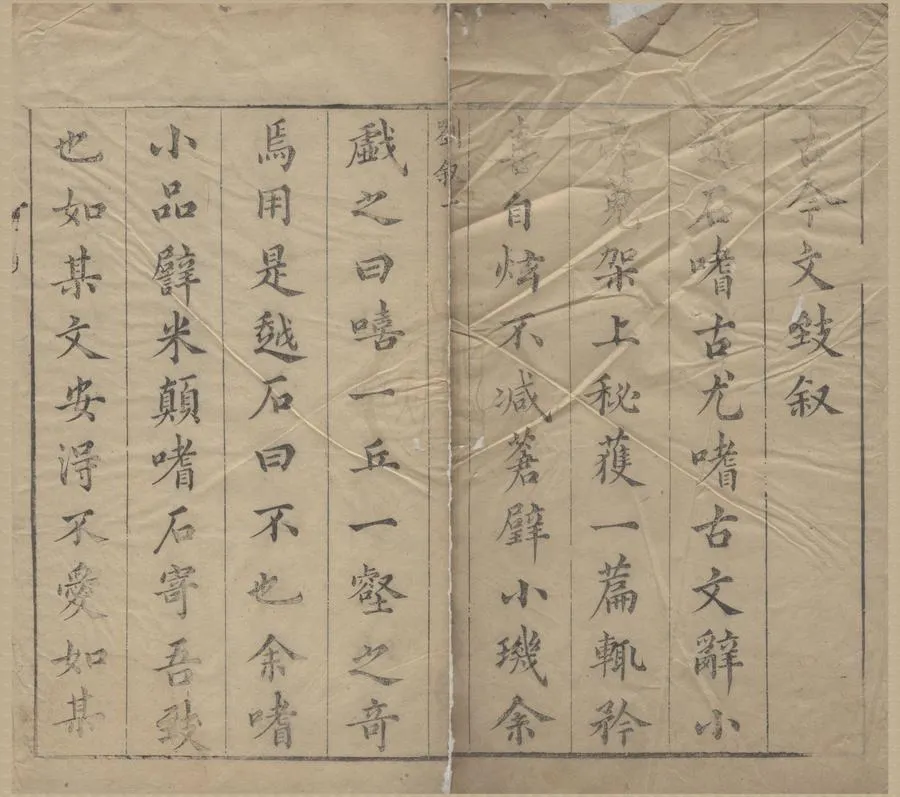 古今文致叙
越石嗜古尤嗜古文辭小
品蒐架上秘獲一篇輒矜
喜自炫不減蒼璧小璣余
劉叙一
戲之曰嘻一丘一壑之奇
焉用是越石曰不也余嗜
小品譬米顛嗜石寄吾致
也如某文安得不愛如某